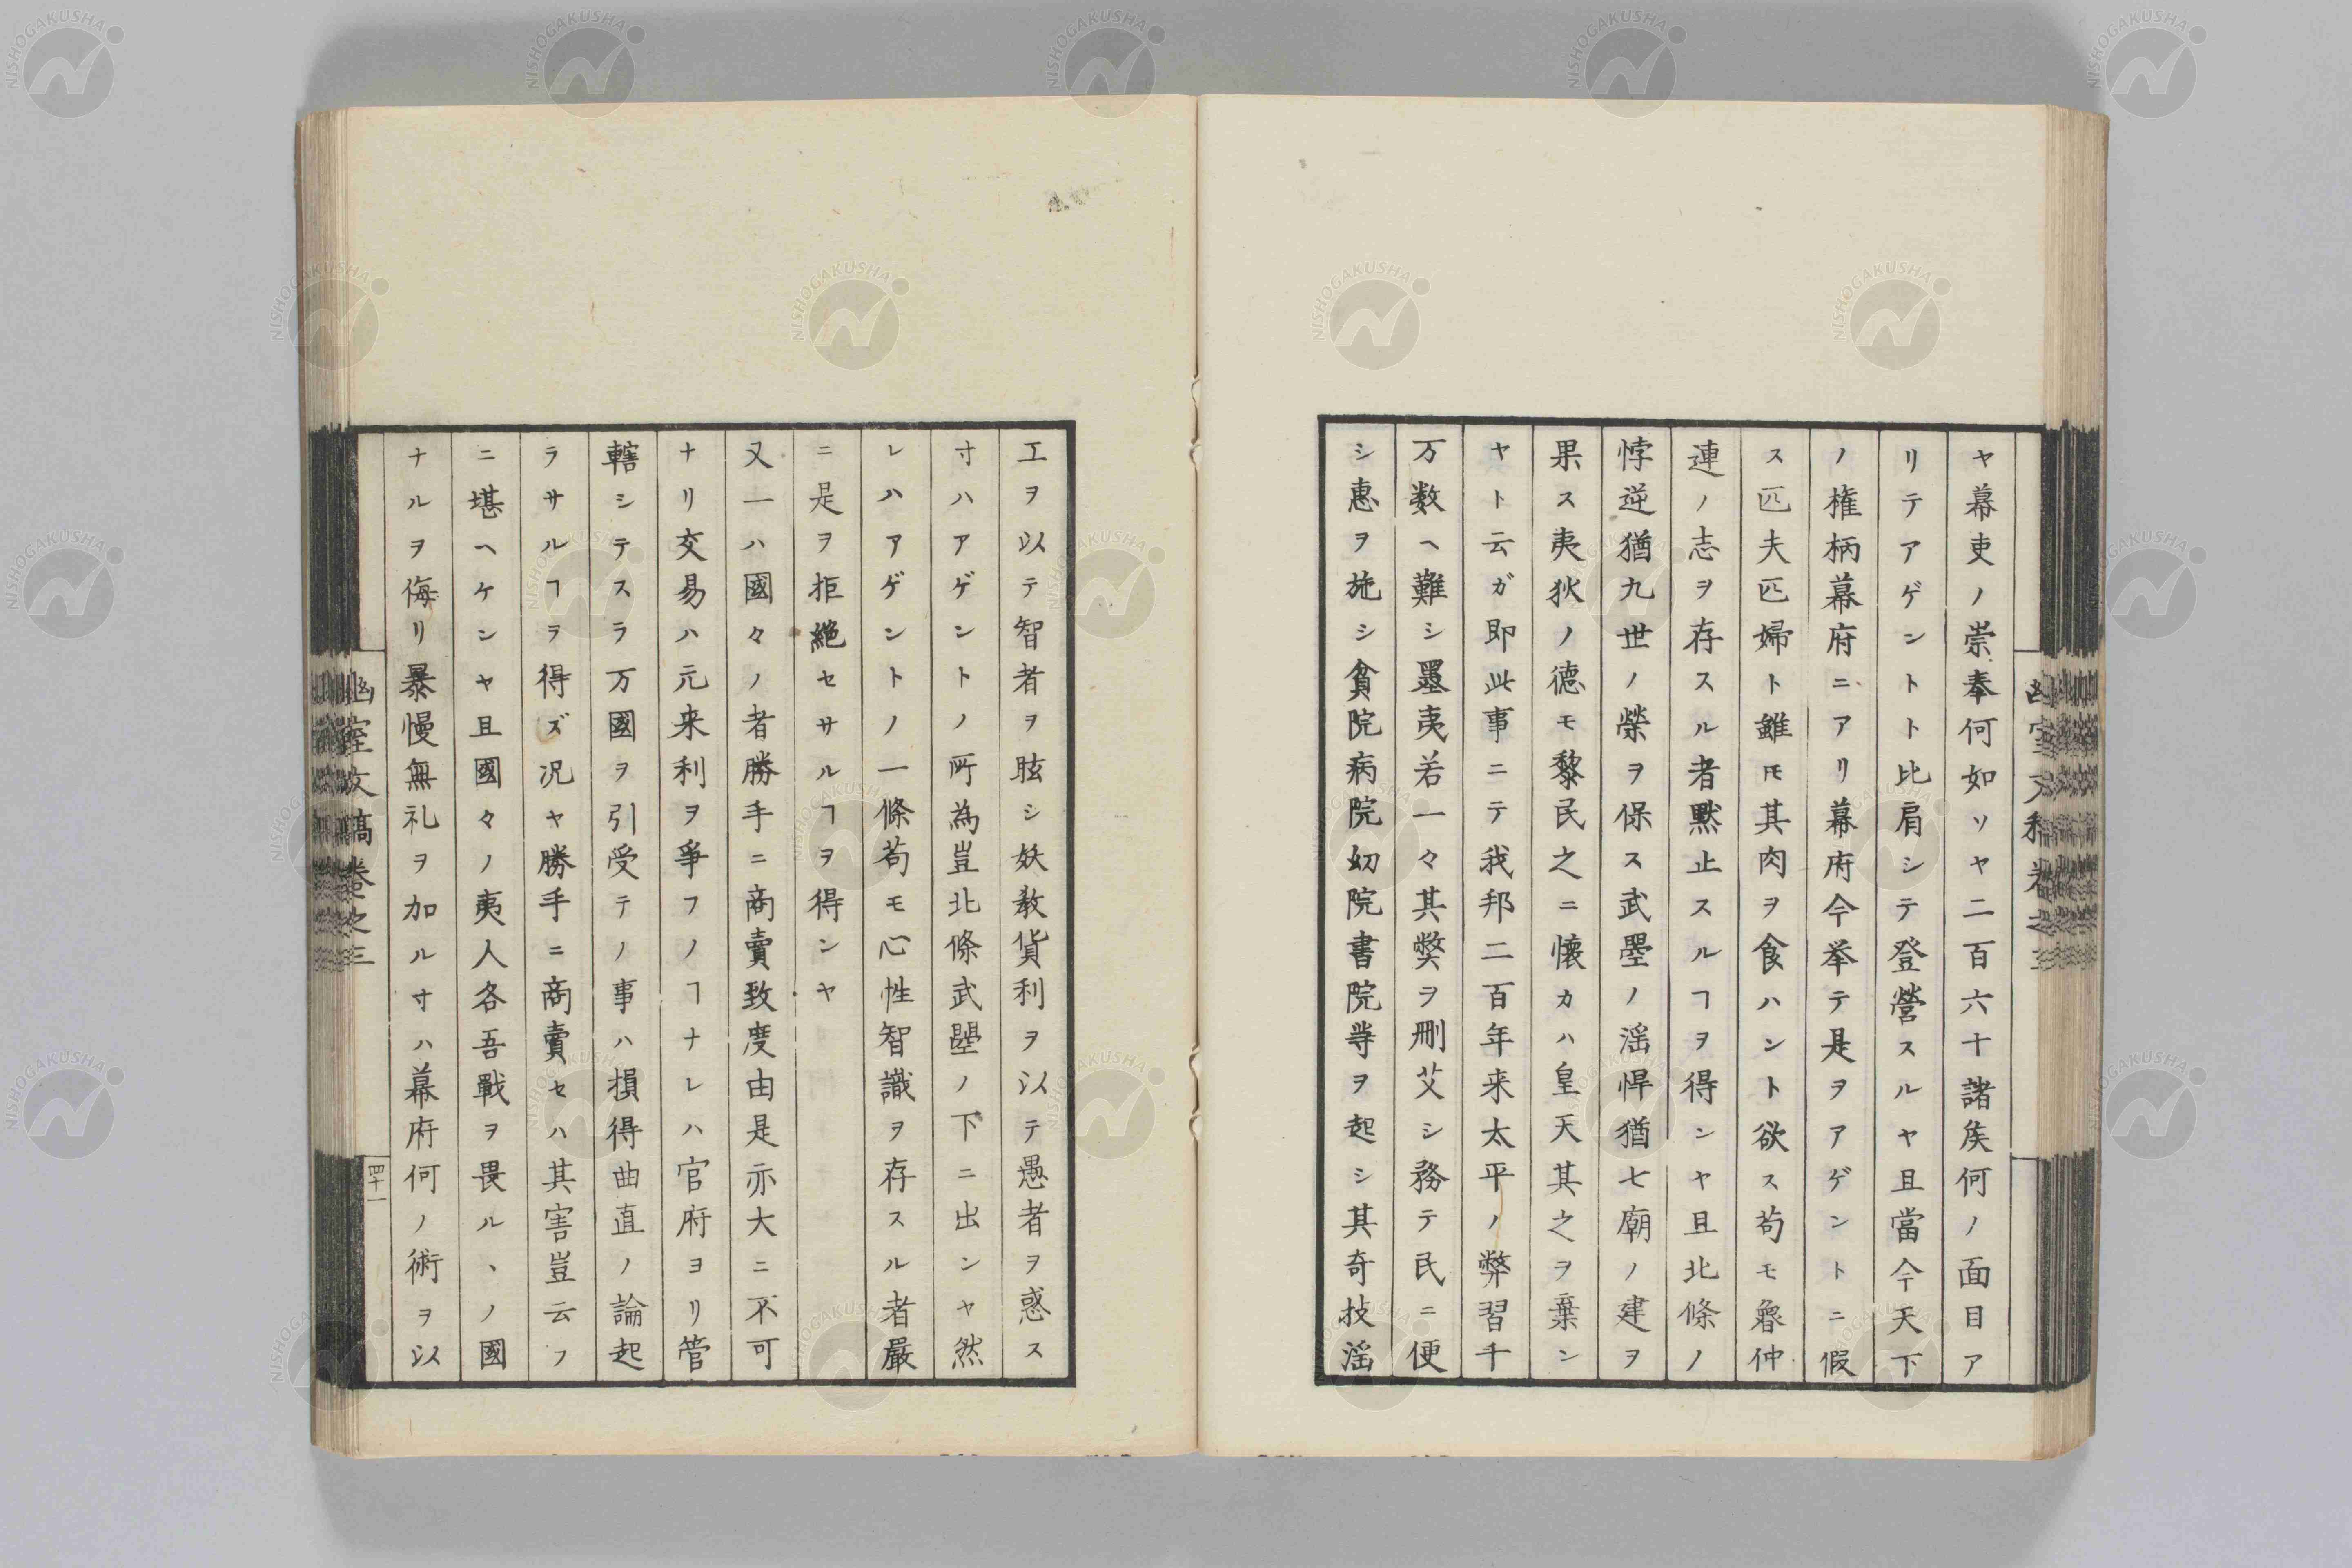 ヤ幕吏ノ崇奉何如ソヤ二百六十諸矦何ノ面目ア
リテアゲントト比肩シテ登營スルヤ且當今天下
ノ権柄幕府ニアリ幕府今挙テ是ヲアゲントニ假
ス匹夫匹婦ト雖𪜈其肉ヲ食ハント欲ス苟モ魯仲
連ノ志ヲ存スル者黙止スルヿヲ得ンヤ且北條ノ
悖逆猶九世ノ榮ヲ保ス武曌ノ滛悍猶七廟ノ建ヲ
果ス夷狄ノ德モ黎民之ニ懷カハ皇天其之ヲ棄ン
ヤト云ガ即此事ニテ我邦二百年来太平ノ弊習千
万数ヘ難シ墨夷若一々其弊ヲ刪艾シ務テ民ニ便
シ惠ヲ施シ貧院病院幼院書院等ヲ起シ其奇技滛
工ヲ以テ智者ヲ眩シ妖教貨利ヲ以テ愚者ヲ惑ス
寸ハアゲントノ所為豈北條武曌ノ下ニ出ンヤ然
レハアゲントノ一條苟モ心性智識ヲ存スル者嚴
ニ是ヲ拒絶セサルヿヲ得ンヤ
又一ハ國々ノ者勝手ニ商賣致度由是亦大ニ不可
ナリ交易ハ元来利ヲ爭フノヿナレハ官府ヨリ管
轄シテスラ万國ヲ引受テノ事ハ損得曲直ノ論起
ラサルヿヲ得ズ况ヤ勝手ニ商賣セハ其害豈云フ
ニ堪ヘケンヤ且國々ノ夷人各吾戰ヲ畏ルヽノ國
ナルヲ侮リ暴慢無礼ヲ加ル寸ハ幕府何ノ術ヲ以
幽室文稿卷之三
四十一
NISHOGAKUSHA